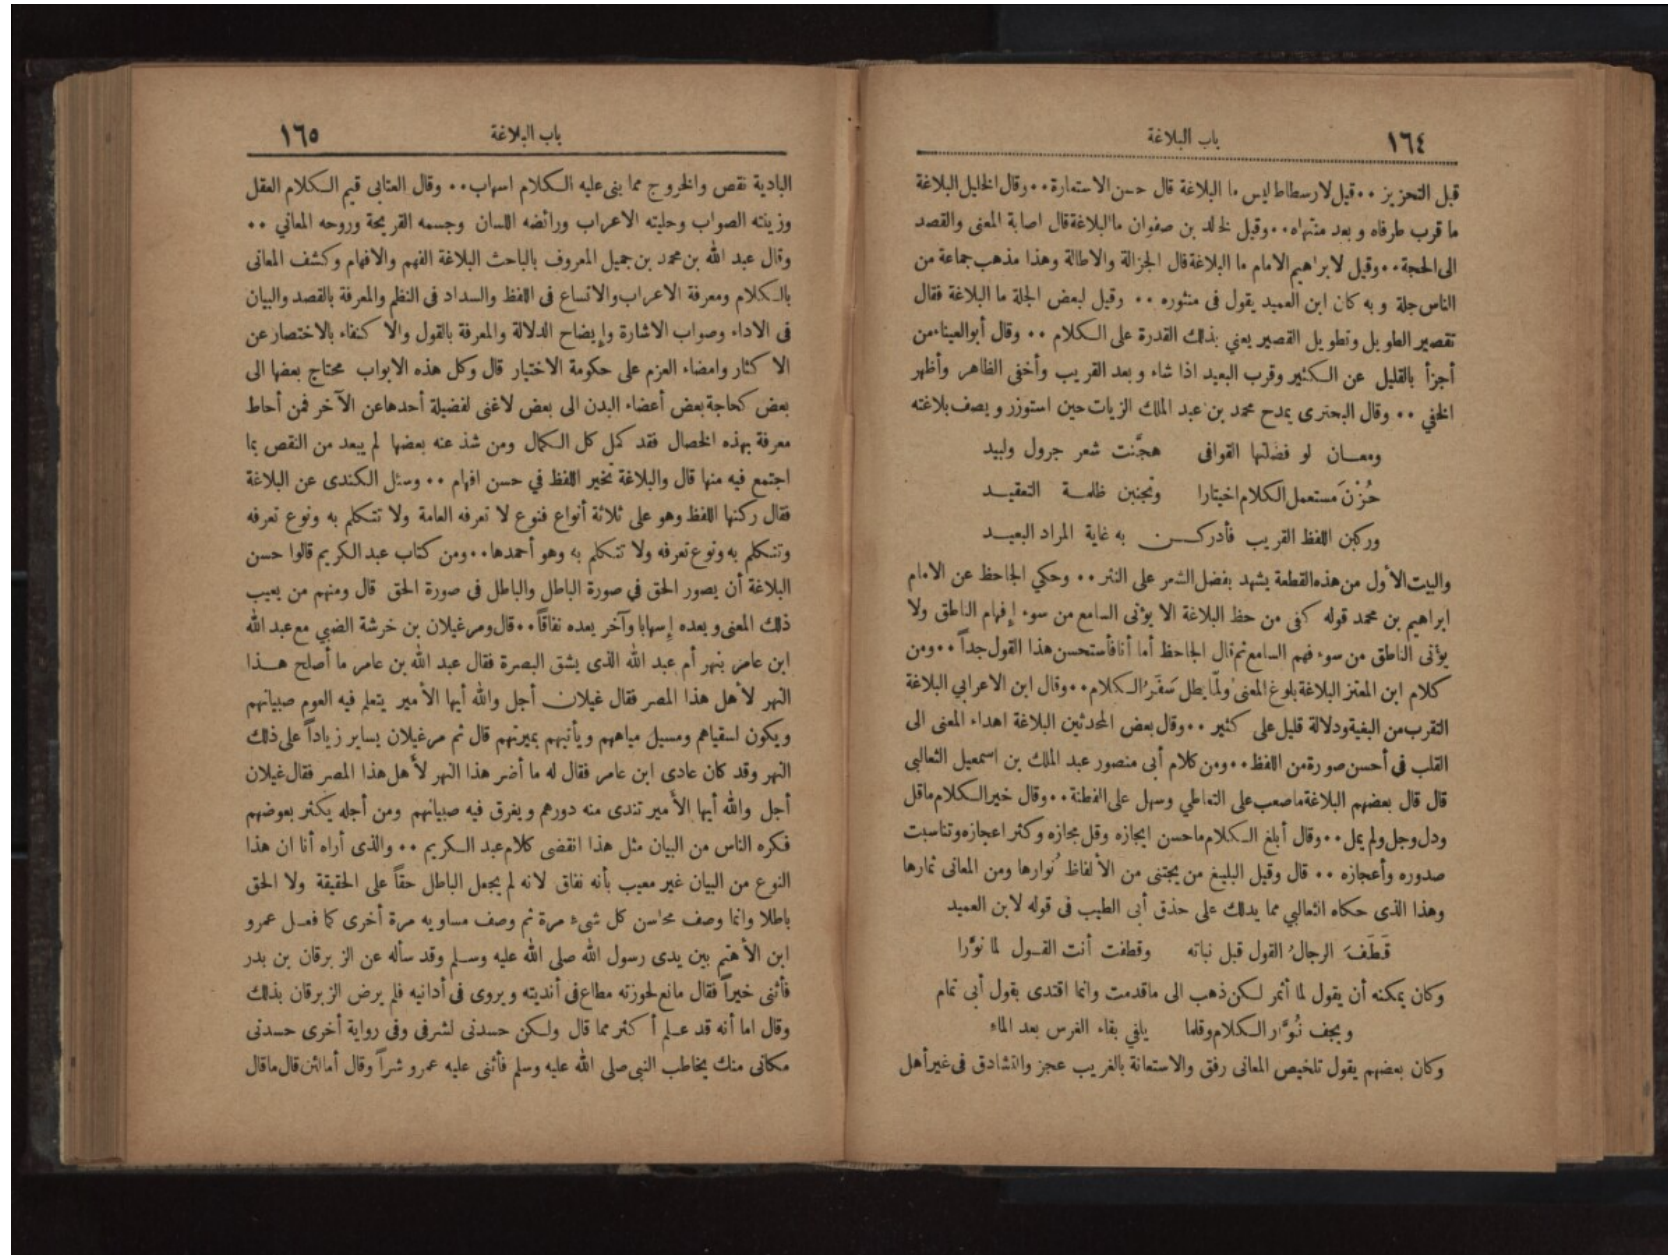 ١٦٤
باب البلاغة
قبل التحزيز ٠٠ قيل لارسطاطاليس ما البلاغة قال حسن الاستعارة ٠٠ وقال الخليل البلاغة
ما قرب طرفاه وبعد منتهاه ٠٠ وقيل لخالد بن صفوان ما البلاغة قال اصابة المعنى والقصد
الى الحجة ٠٠ وقيل لابراهيم الامام ما البلاغة قال الجزالة والاطالة وهذا مذهب جماعة من
الناس جلة وبه كان ابن العميد يقول فى منثوره ٠٠ وقيل لبعض الجلة ما البلاغة فقال
تقصير الطويل وتطويل القصير يعني بذلك القدرة على الكلام ٠٠ وقال أبوالعيناء من
أجزأ بالقليل عن الكثير وقرب البعيد اذا شاء وبعد القريب وأخفى الظاهر وأظهر
الخفي ٠٠ وقال البحترى يمدح محمد بن عبد الملك الزيات حين استوزر ويصف بلاغته
ومعان لو فصلتها القوافى هجَّنت شعر جرول ولبيد
حُزْنَ مستعمل الكلام اختيارا وتجنبن ظلمة التعقيد
وركبن اللفظ القريب فأدركن به غاية المراد البعيد
والبيت الأول من هذه القطعة يشهد بفضل الشعر على النثر ٠٠ وحكي الجاحظ عن الامام
ابراهيم بن محمد قوله كفى من حظ البلاغة الا يؤتى السامع من سوء إفهام الناطق ولا
يؤتى الناطق من سوء فهم السامع ثم قال الجاحظ أما أنا فأستحسن هذا القول جداً ٠٠ ومن
كلام ابن المعتز البلاغة بلوغ المعنى ولمّا يطل سَفَرُ الكلام ٠٠ وقال ابن الاعرابي البلاغة
التقرب من البغية ودلالة قليل على كثير ٠٠ وقال بعض المحدثين البلاغة اهداء المعنى الى
القلب فى أحسن صورة من اللفظ ٠٠ ومن كلام أبى منصور عبد الملك بن اسمعيل الثعالبى
قال قال بعضهم البلاغة ما صعب على التعاطي وسهل على الفطنة ٠٠ وقال خير الكلام ماقل
ودل وجل ولم يمل ٠٠ وقال أبلغ الكلام ما حسن ايجازه وقل مجازه وكثر اعجازه وتناسبت
صدوره وأعجازه ٠٠ قال وقيل البليغ من يجتنى من الألفاظ نُوارها ومن المعانى ثمارها
وهذا الذى حكاه الثعالبي مما يدلك على حذق أبى الطيب فى قوله لابن العميد
قَطَفَ الرجالُ القول قبل نباته وقطفت أنت القول لما نوَّرا
وكان يمكنه أن يقول لما أثمر لكن ذهب الى ماقدمت وانما اقتدى بقول أبى تمام
ويجف نُوَّار الكلام وقلما يلفي بقاء الغرس بعد الماء
وكان بعضهم يقول تلخيص المعانى رفق والاستعانة بالغريب عجز والتشادق فى غير أهل
باب البلاغة
١٦٥
البادية نقص والخروج مما بنى عليه الكلام اسهاب ٠٠ وقال العتابى قيم الكلام العقل
وزينته الصواب وحليته الاعراب ورائضه اللسان وجسمه القريحة وروحه المعاني ٠٠
وقال عبد الله بن محمد بن جميل المعروف بالباحث البلاغة الفهم والافهام وكشف المعانى
بالكلام ومعرفة الاعراب والاتساع فى اللفظ والسداد فى النظم والمعرفة بالقصد والبيان
فى الاداء وصواب الاشارة وإيضاح الدلالة والمعرفة بالقول والاكتفاء بالاختصار عن
الاكثار وامضاء العزم على حكومة الاختيار قال وكل هذه الابواب محتاج بعضها الى
بعض كحاجة بعض أعضاء البدن الى بعض لاغنى لفضيلة أحدها عن الآخر فمن أحاط
معرفة بهذه الخصال فقد كمل كل الكمال ومن شذ عنه بعضها لم يبعد من النقص بما
اجتمع فيه منها قال والبلاغة تخير اللفظ في حسن افهام ٠٠ وسئل الكندى عن البلاغة
فقال ركنها اللفظ وهو على ثلاثة أنواع فنوع لا تعرفه العامة ولا تتكلم به ونوع تعرفه
وتتكلم به ونوع تعرفه ولا تتكلم به وهو أحمدها ٠٠ ومن كتاب عبد الكريم قالوا حسن
البلاغة أن يصور الحق في صورة الباطل والباطل فى صورة الحق قال ومنهم من يعيب
ذلك المعنى ويعده إسهابا وآخر يعده نفاقاً ٠٠ قال ومر غيلان بن خرشة الضبي مع عبد الله
ابن عامر بنهر أم عبد الله الذى يشق البصرة فقال عبد الله بن عامر ما أصلح هذا
النهر لأهل هذا المصر فقال غيلان أجل والله أيها الأمير يتعلم فيه العوم صبيانهم
ويكون لسقياهم ومسيل مياههم ويأتيهم بميرتهم قال ثم مر غيلان يساير زياداً على ذلك
النهر وقد كان عادى ابن عامر فقال له ما أضر هذا النهر لأهل هذا المصر فقال غيلان
أجل والله أيها الأمير تندى منه دورهم ويغرق فيه صبيانهم ومن أجله يكثر بعوضهم
فكره الناس من البيان مثل هذا انقضى كلام عبد الكريم ٠٠ والذى أراه أنا ان هذا
النوع من البيان غير معيب بأنه نفاق لانه لم يجعل الباطل حقاً على الحقيقة ولا الحق
باطلا وانما وصف محاسن كل شىء مرة ثم وصف مساويه مرة أخرى كما فعل عمرو
ابن الأهتم بين يدى رسول الله صلى الله عليه وسلم وقد سأله عن الزبرقان بن بدر
فأثنى خيراً فقال مانع لحوزته مطاع فى أنديته ويروى فى أدانيه فلم يرض الزبرقان بذلك
وقال اما أنه قد علم أكثر مما قال ولكن حسدنى لشرفى وفى رواية أخرى حسدنى
مكانى منك يخاطب النبى صلى الله عليه وسلم فأثنى عليه عمرو شراً وقال أما لئن قال ماقال